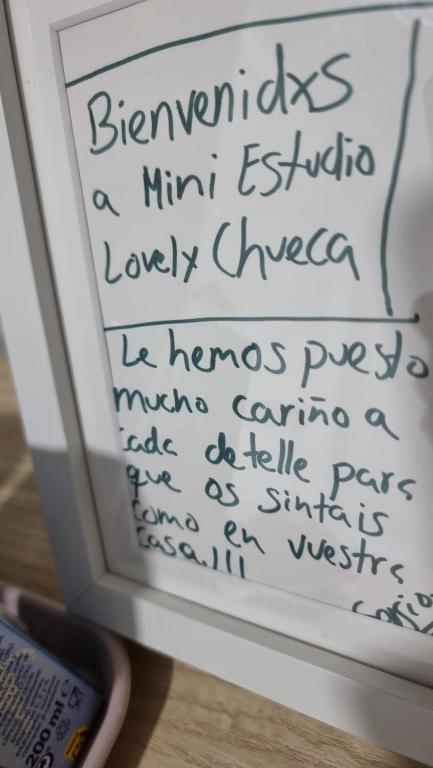 Bienvenidxs
a Mini Estudio
Lovely Chueca
Le hemos puesto
mucho cariño a
cada detelle para
que os sintais
como en vuestra
casa.!!!
200 ml e